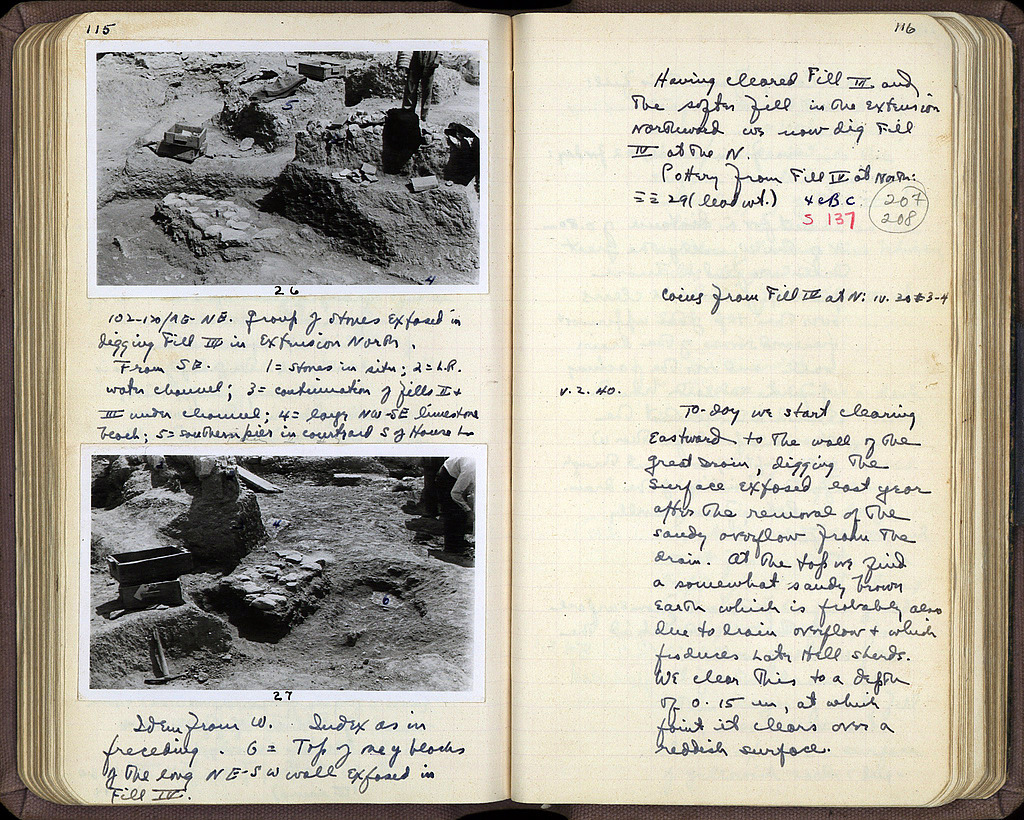 115
5
4
26
102-120/ΛΕ-ΝΕ. Group of stones exposed in
digging Fill III in Extension North.
From SE. 1 = stones in situ; 2 = L.R.
water channel; 3 = continuation of fills II +
III under channel; 4 = large NW-SE limestone
5 = southern pier in courtyard S of House
4
6
27
Idem from W. Index as in
preceding. 6 = Top of blocks
of the long NE-SW wall exposed in
Fill IV.
116
Having cleared Fill III and
the softer fill in the extension
Northward we now dig Fill
IV at the N.
Pottery from Fill IV at North:
ΞΞ 29 (lead wt.) 4 c B.C. 207
S 137 208
Coins from Fill IV at N: IV. 20 # 3-4
V. 2. 40.
To-day we start clearing
Eastward to the wall of the
great drain, digging the
surface exposed last year
after the removal of the
sandy overflow from the
drain. At the top we find
a somewhat sandy brown
earth which is probably also
due to drain overflow + which
produces Late Hell sherds.
We clear this to a depth
of 0.15 m, at which
point it clears over a
reddish surface.